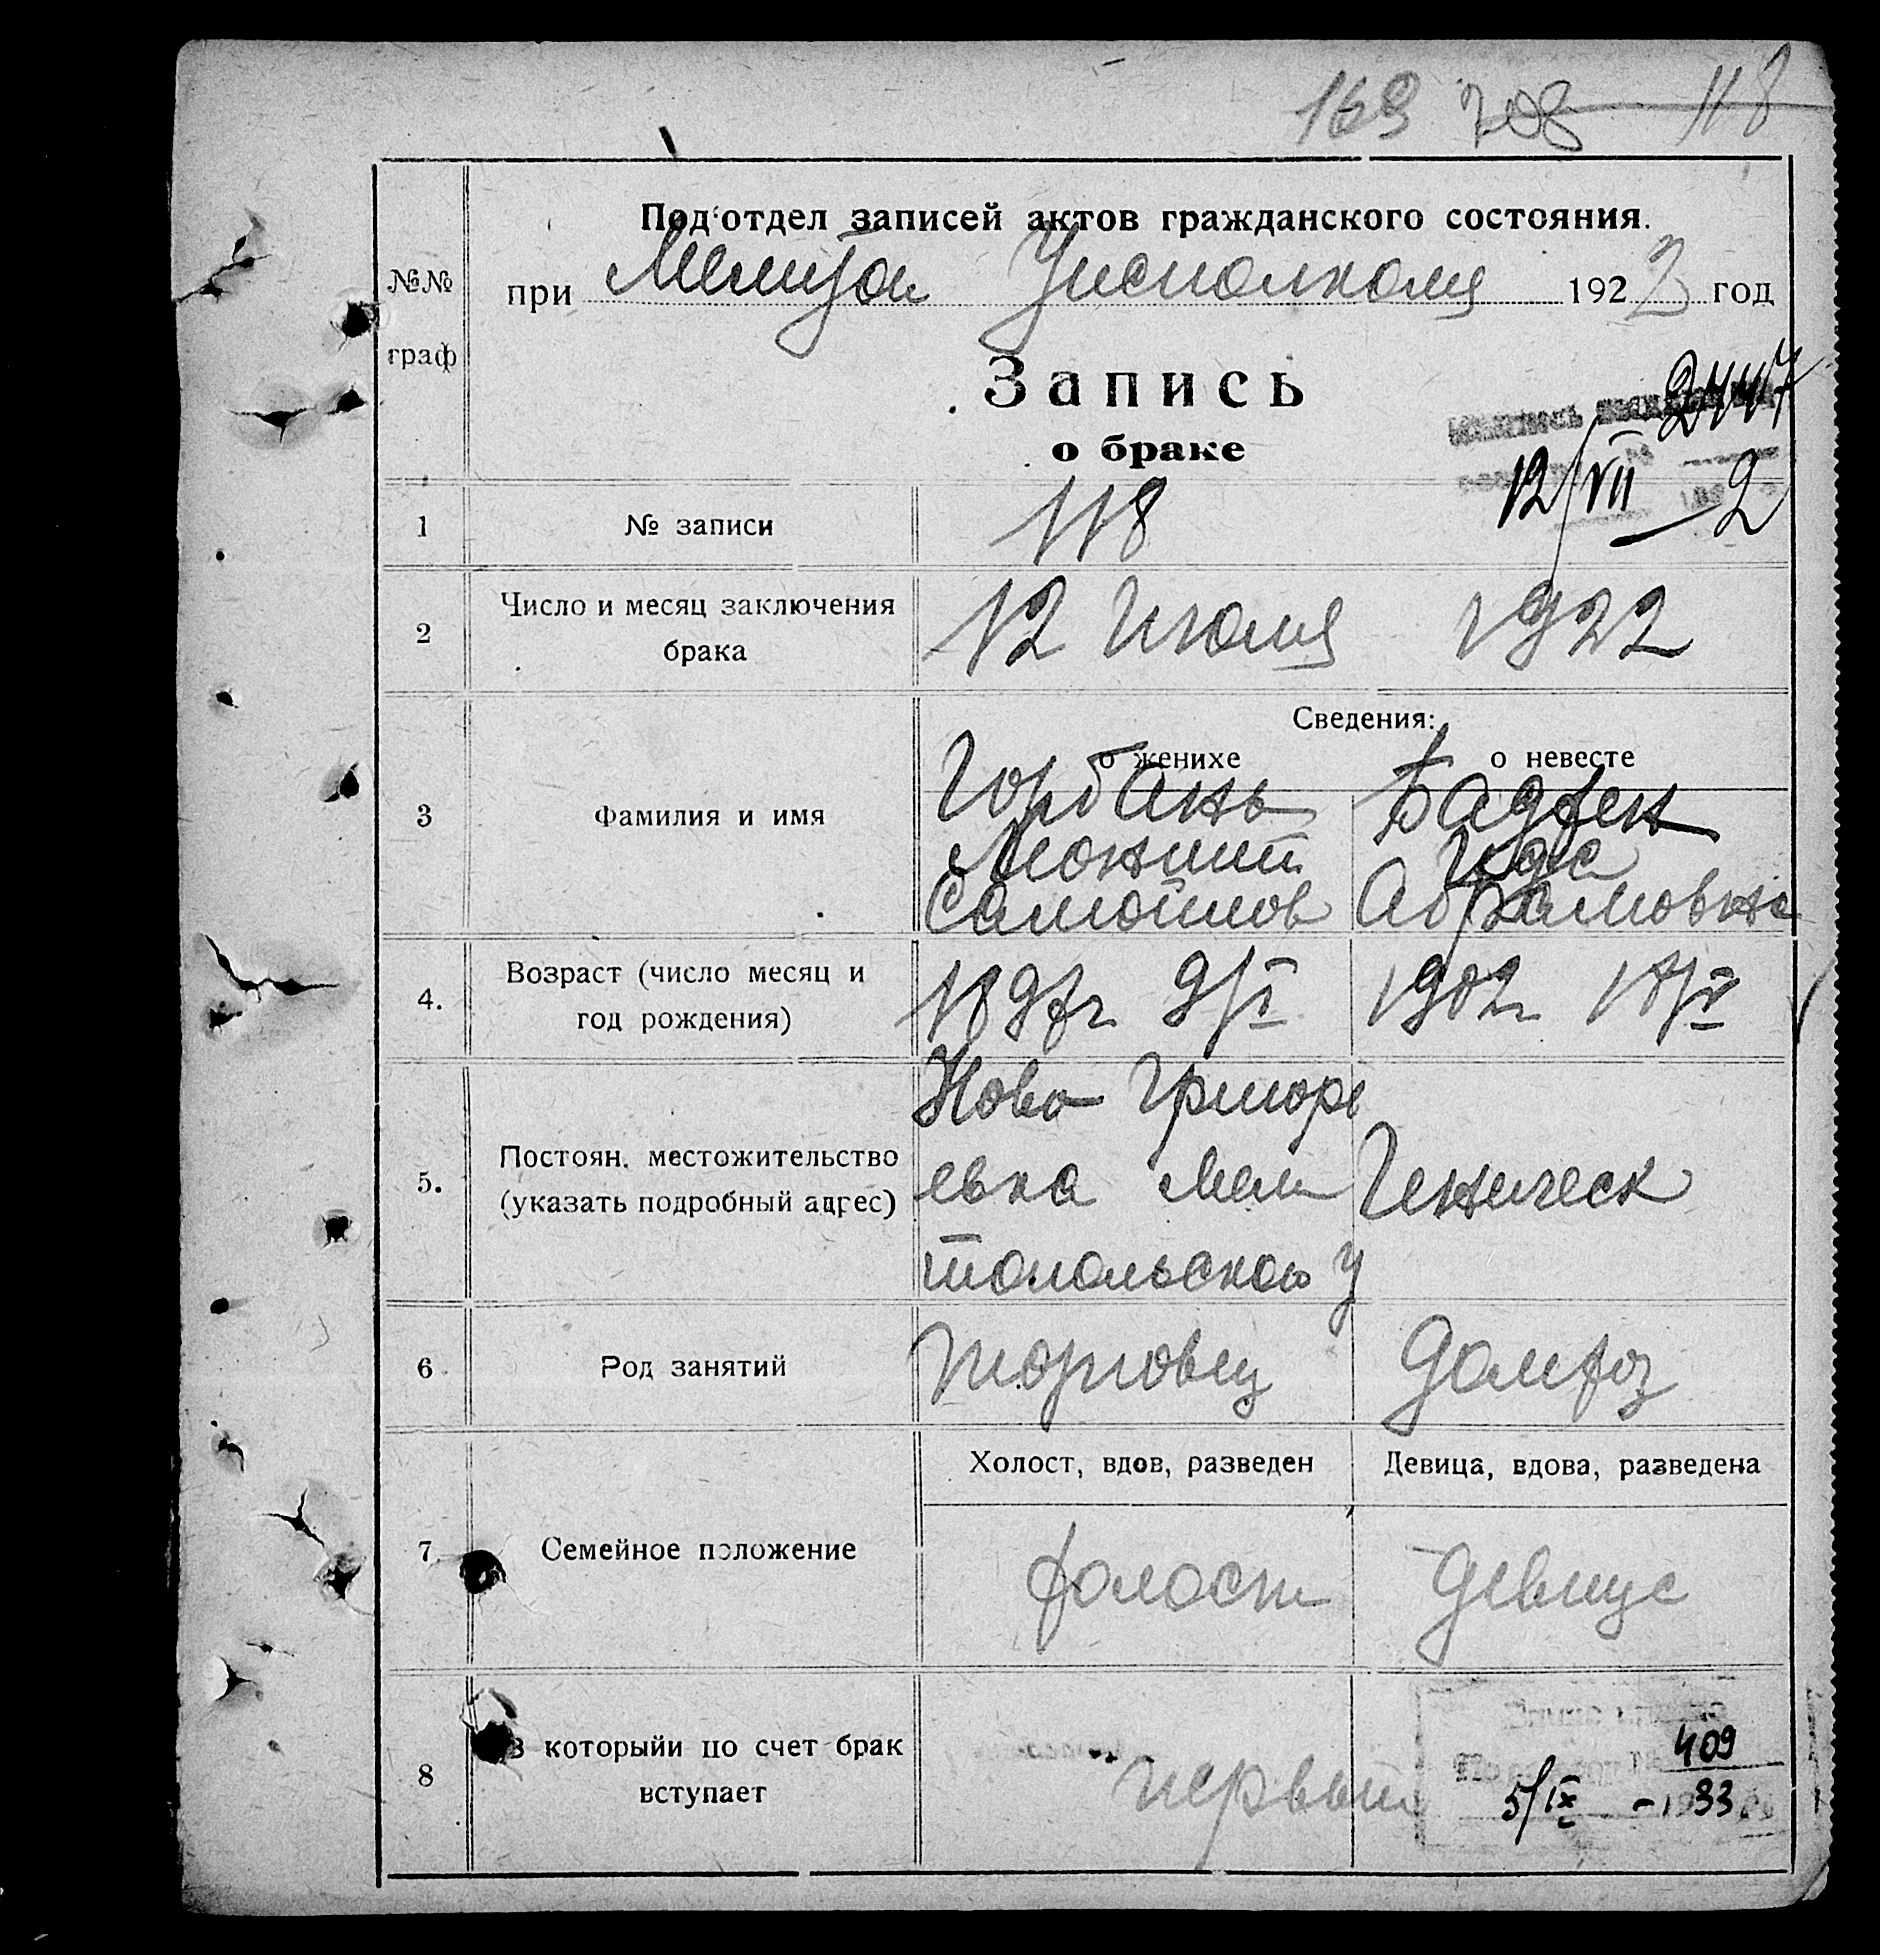 169 708 118
Под'отдел записей актов гражданского состояния.
№№ граф
при Мелитоп Уисполкома 1922 год
Запись
о браке
2447
12/VII 2
1 № записи 118
2 Число и месяц заключения брака 12 Июля 1922
Сведения:
о женихе о невесте
3 Фамилия и имя
Горбань
Самойлов
Ида
Абрамовна
4. Возраст (число месяц и год рождения)
1897г 1902г
5. Постоян. местожительство (указать подробный адрес)
Ново Григорь
евка Мели
топольского у
Геническ
6 Род занятий торговец
7 Семейное положение
Холост, вдов, разведен Девица, вдова, разведена
холост девица
8 В которыйи по счет брак вступает
первый
409
5/IX - 33